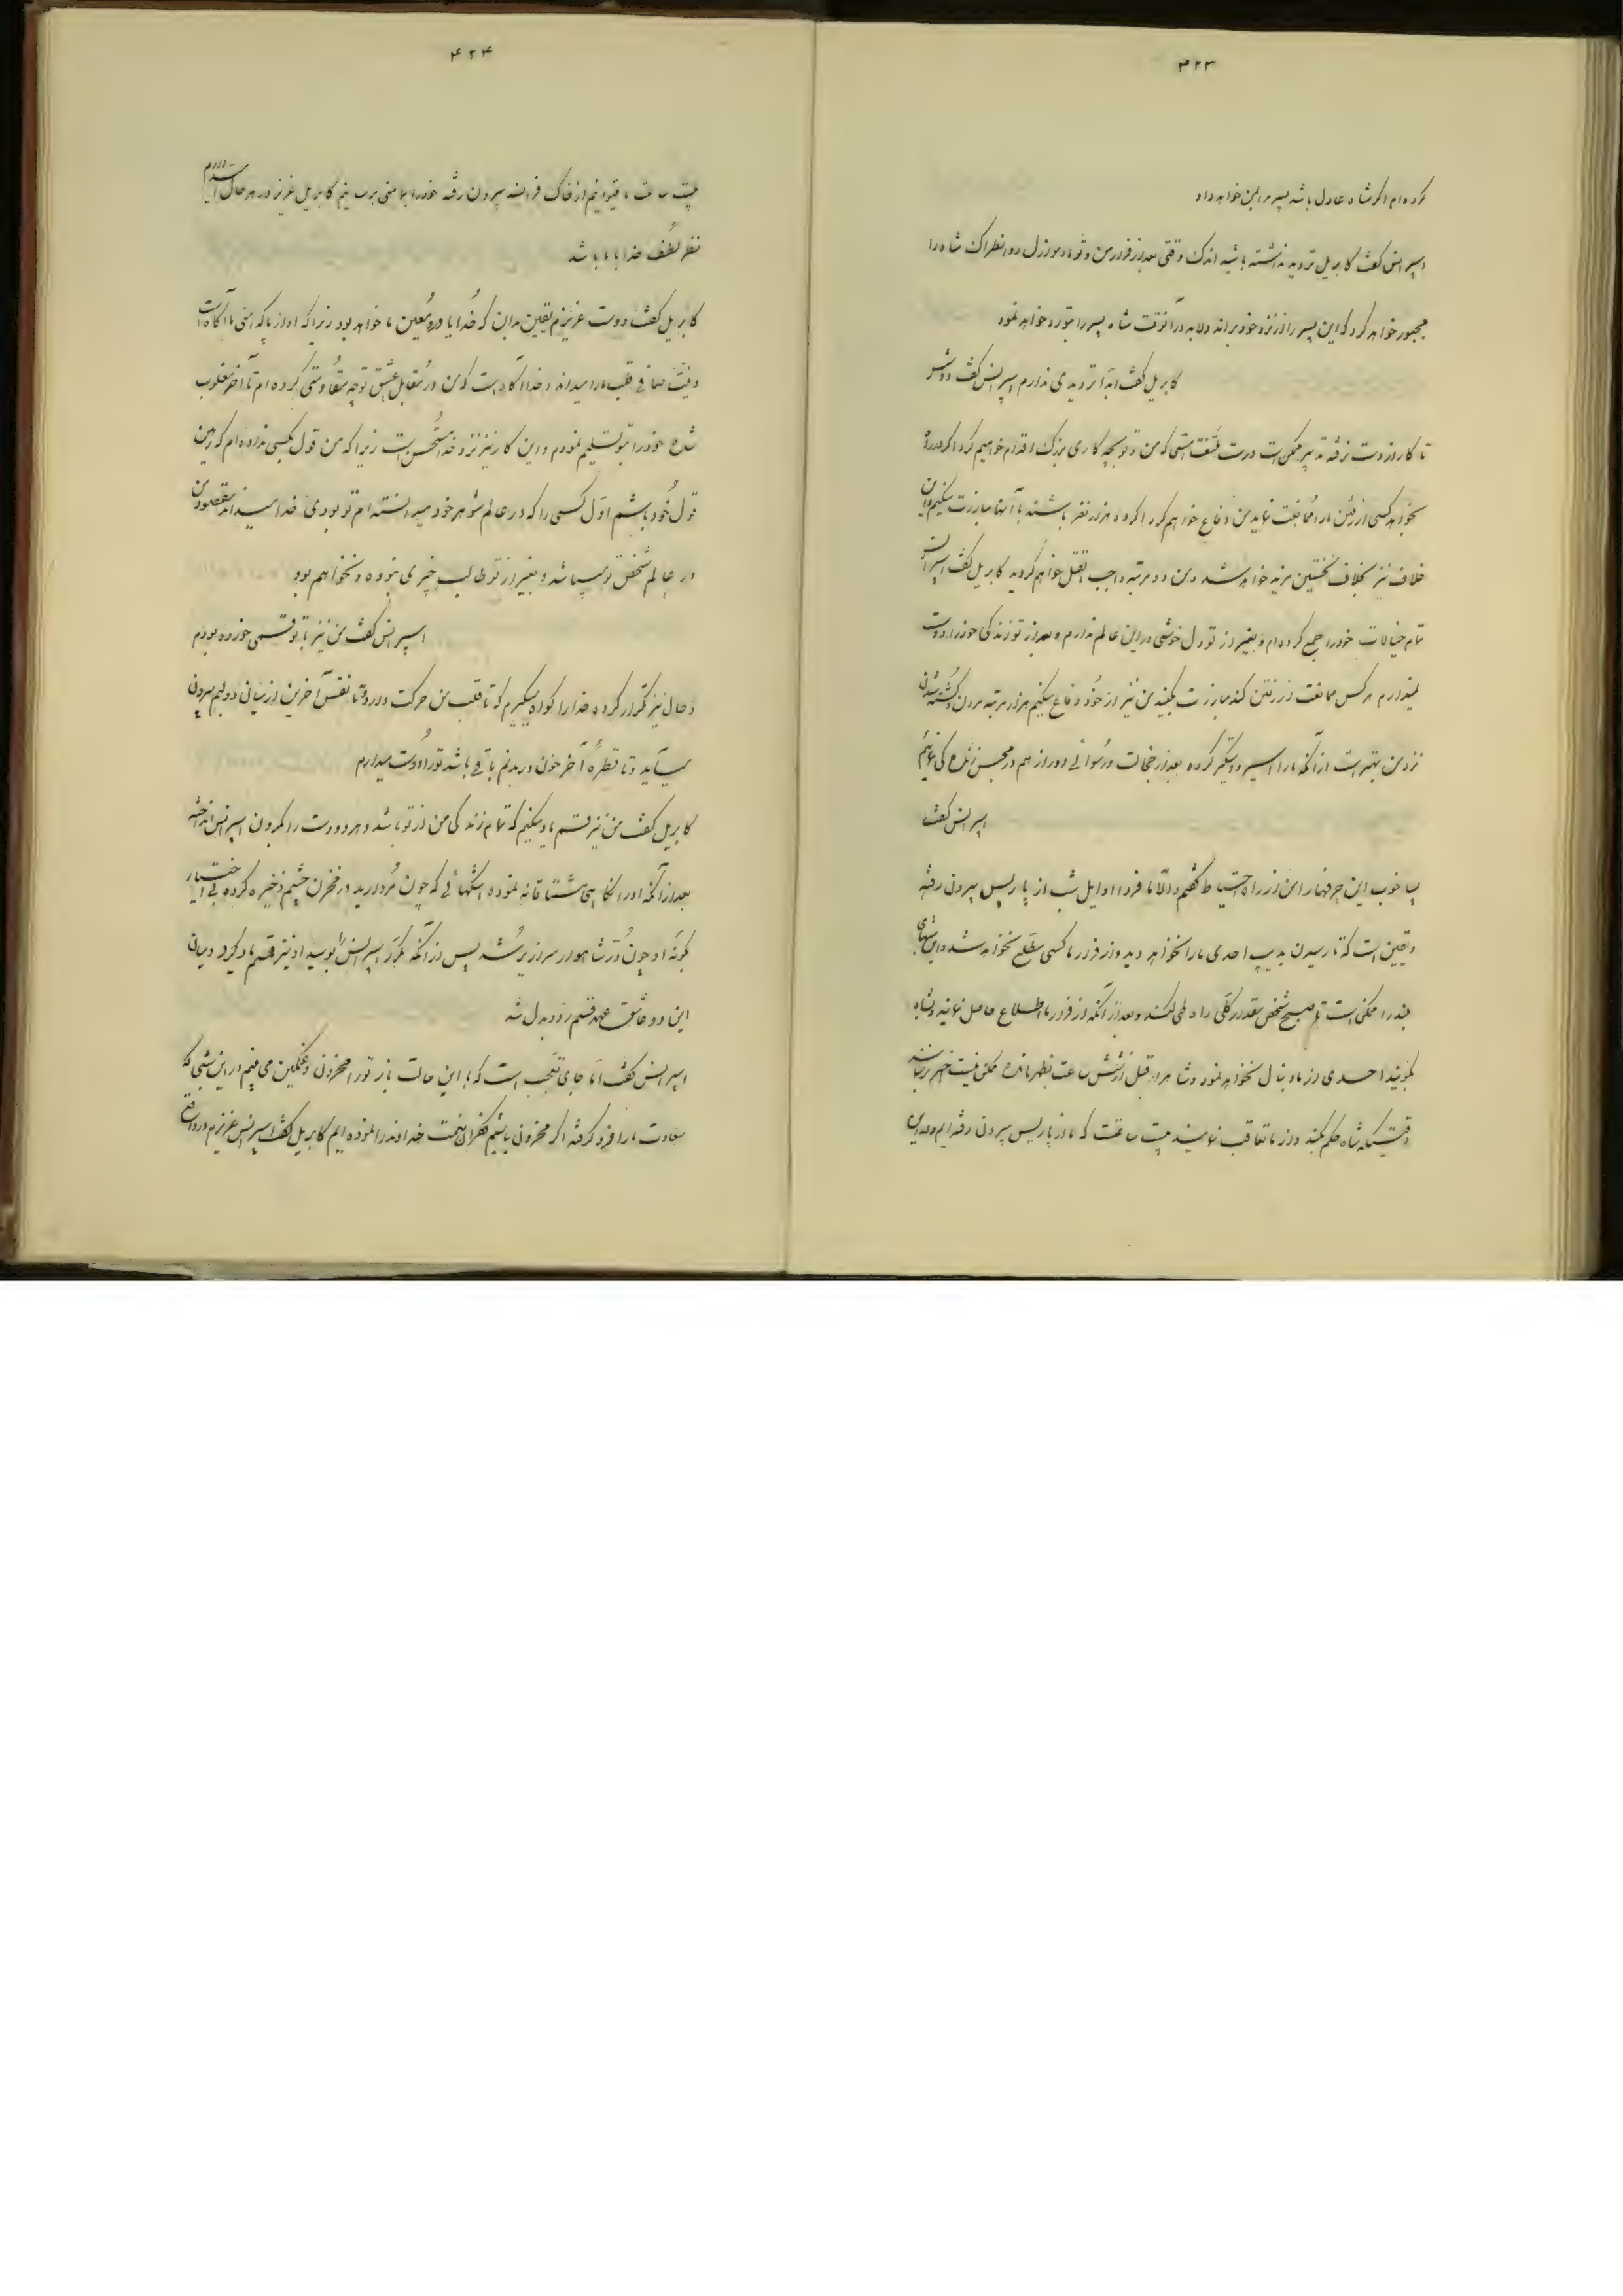 ۴۲۳
کرده‌ام اگر شاه عادل باشد پسر مرا بمن خواهد داد
اسپرانس گفت کابریل تردید نداشته باشید اندک وقتی بعد از فرار من و تو مادموازل دوانطراک شاه را
مجبور خواهد کرد که این پسر را از نزد خود براند ولابد در آنوقت شاه پسر را بتو رد خواهد نمود
کابریل گفت ابداً تردیدی ندارم اسپرانس گفت
تا کار از دست نرفته تدبیر ممکن است درست ملتفت هستی که من و تو بچه کاری بزرگ اقدام خواهیم کرد اگر در راه
بخواهد کسی از رفتن ما را ممانعت نماید من دفاع خواهم کرد اگر ده هزار نفر باشند با آنها مبارزت میکنم و این
خلاف نیز بخلاف نخستین مزید خواهد شد و من دو مرتبه واجب القتل خواهم گردید کابریل گفت اسپرانس
تمام خیالات خود را جمع کرده‌ام و بغیر از تو دل خوشی در این عالم ندارم و بعد از تو زندگی خود را دوست
نمیدارم هر کس ممانعت از رفتن کند مبارزت بکنید من نیز از خود دفاع میکنم هزار مرتبه مردن و کشته شدن
نزد من بهتر است از آنکه ما را اسیر و دستگیر کرده بعد از خجالت و رسوائی دور از هم در محبس زندگی نمائیم
اسپرانس گفت
بسیار خوب این حرفها را من از راه احتیاط گفتم والا ما فردا اوایل شب از پاریس بیرون رفته
و یقین است که تا رسیدن بدیپ احدی ما را نخواهد دید و از فرار ما کسی مطلع نخواهد شد و این شبهای
بلند را ممکن است تا صبح شخص مقدار کلی راه طی کند و بعد از آنکه از فرار ما اطلاع حاصل نمایند و بشاه
بگویند احدی از ما دنبال نخواهد نمود و شاهد قبل از شش ساعت بظهر مانده ممکن نیست خبر برسانند
وقتیکه شاه حکم بکند و از ما تعاقب نمایند بیست ساعت که ما از پاریس بیرون رفته‌ایم و بعد از این
۴۲۴
بیست ساعت ما میتوانیم از خاک فرانسه بیرون رفته خود را بمأمنی برسانیم کابریل عزیز در هر حال امیدوارم
نظر لطف خدا با ما باشد
کابریل گفت دوست عزیزم یقین بدان که خدا یاور و معین ما خواهد بود زیرا که او از پاکدامنی ما آگاه است
و نیت صافی قلب ما را میداند و خدا آگاه است که من در مقابل عشق تو چه مقاومتی کرده‌ام تا آخر مغلوب
شده خود را بتو تسلیم نمودم و این کار نیز نزد خدا مستحسن است زیرا که من قول بکسی نداده‌ام که رهین
قول خود باشم اول کسی را که در عالم شوهر خود میدانسته‌ام تو بودی خدا میداند مقصود من
در عالم شخص تو میباشد و بغیر از تو طالب چیزی نبوده و نخواهم بود
اسپرانس گفت من نیز با تو قسمی خورده بودم
و حال نیز تکرار کرده خدا را گواه میگیرم که تا قلب من حرکت دارد و تا نفس آخرین از میان دو لبم بیرون
میآید و تا قطره آخر خون در بدنم باقی باشد تو را دوست میدارم
کابریل گفت من نیز قسم یاد میکنم که تمام زندگی من از تو باشد و هر دو دست را بگردن اسپرانس انداخته
بعد از آنکه او را نگاهی مشتاقانه نموده اشکهائی که چون مروارید در مخزن چشم ذخیره کرده بی اختیار
بگونه او چون در شاهوار سرازیر شد پس از آنکه مکرر اسپرانس را بوسید او نیز قسم یاد کرد و میان
این دو عاشق عهد و قسم رد و بدل شد
اسپرانس گفت اما جای تعجب است که با این حالت باز تو را محزون و غمگین می بینم در این شبی که
سعادت ما را فرو گرفته اگر محزون باشیم کفران نعمت خداوند را نموده‌ایم کابریل گفت اسپرانس عزیزم در واقع